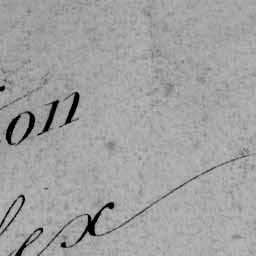 ion
lex